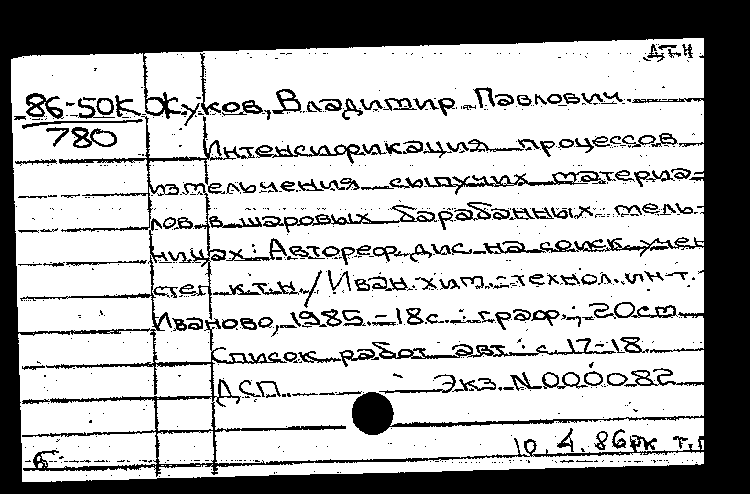 Д.Т.Н
86-50К Жуков, Владимир Павлович
780
Интенсификация процессов
измельчения сыпучих материа-
лов в шаровых барабанных мель-
ницах: Автореф. дис. на соиск. учен
степ. к.т.н. / Иван. хим.-технол. ин-т. -
Иваново, 1985. - 18 с. : граф. ; 20 см.
Список работ авт.: с. 17-18
ДСП Экз. N 000082
10.4.86 рк
б